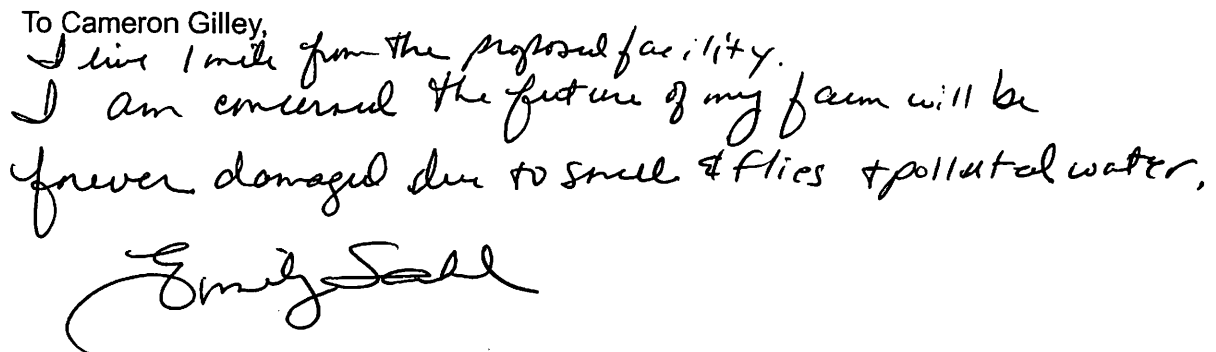 To Cameron Gilley,
I live 1 mile from the proposed facility.
I am concerned the future of my farm will be
forever damaged due to smell & flies + polluted water.
Emily